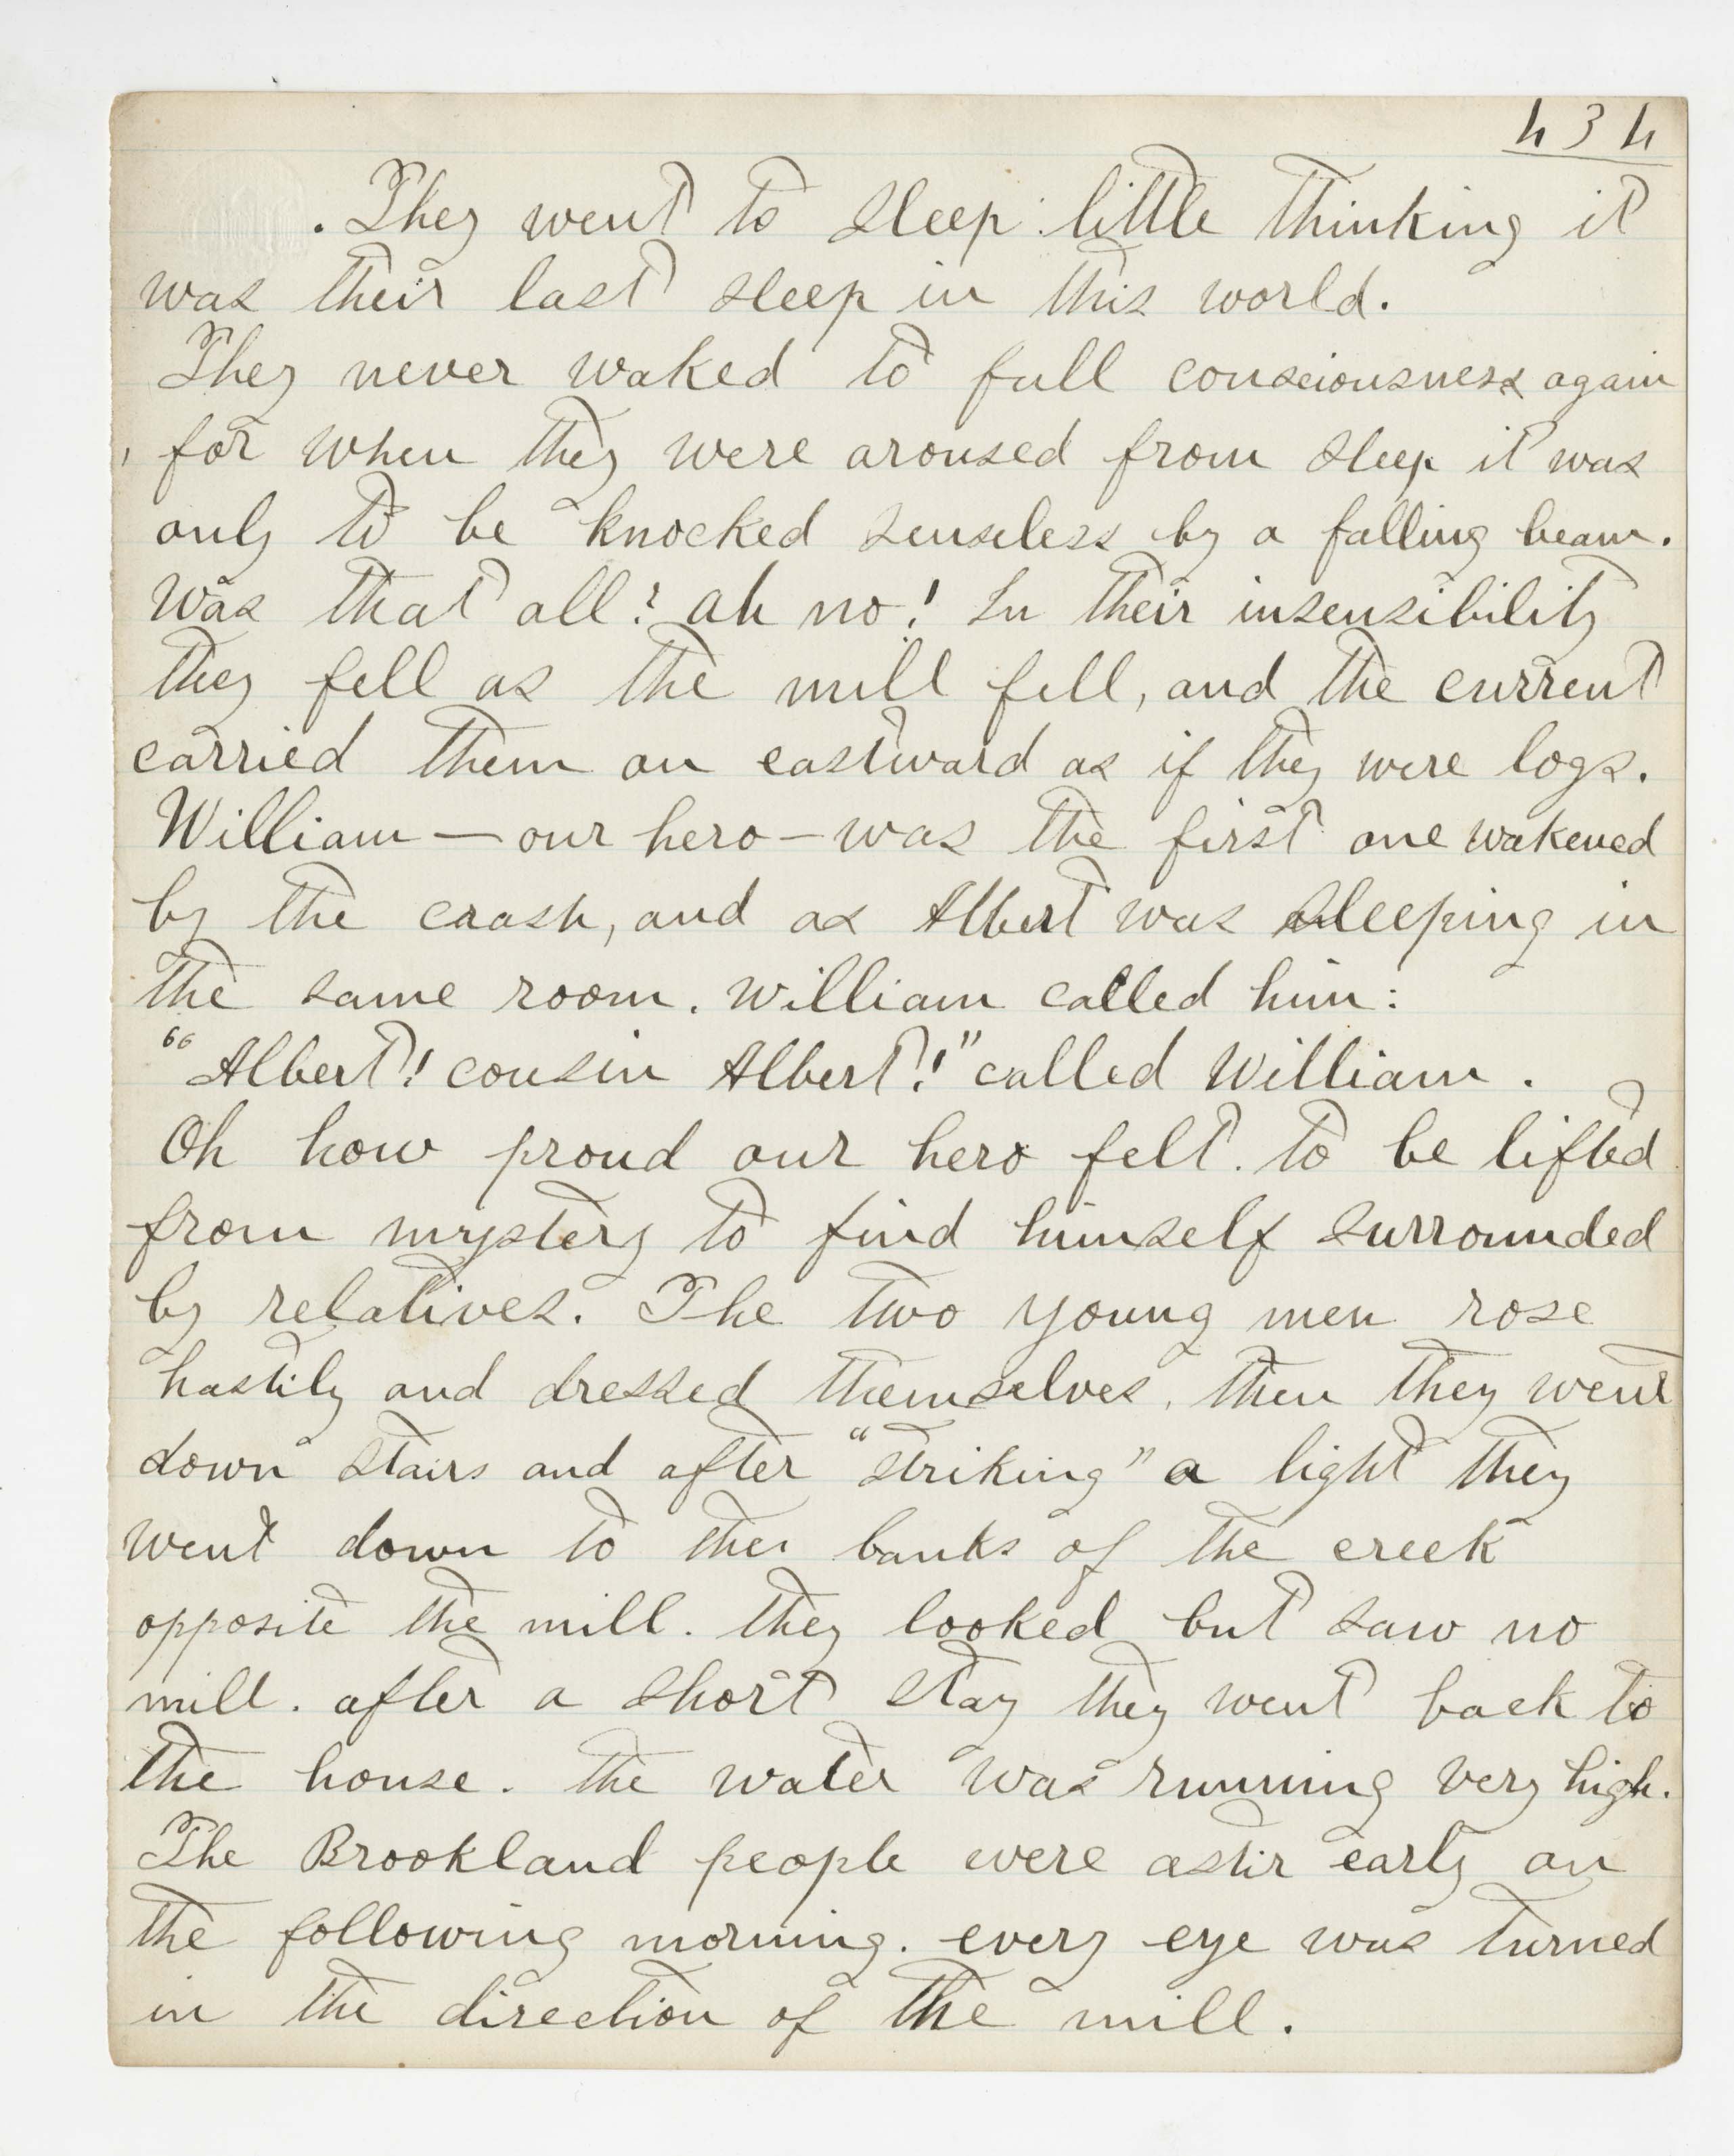 434
. They went to sleep little thinking it
was their last sleep in this world.
They never waked to full consciousness again
, for when they were aroused from sleep it was
only to be knocked senseless by a falling beam.
was that all? ah no! In their insensibility
they fell as the mill fell, and the current
carried them on eastward as if they were logs.
William — our hero — was the first one wakened
by the crash, and as Albert was sleeping in
the same room. William called him:
"Albert! cousin Albert!" called William.
Oh how proud our hero felt. to be lifted
from mystery to find himself surrounded
by relatives. The two young men rose
hastily and dressed themselves. then they went
down stairs and after "striking" a light they
went down to the banks of the creek
opposite the mill. they looked but saw no
mill. after a short stay they went back to
the house. the water was running very high.
The Brookland people were astir early on
the following morning. every eye was turned
in the direction of the mill.